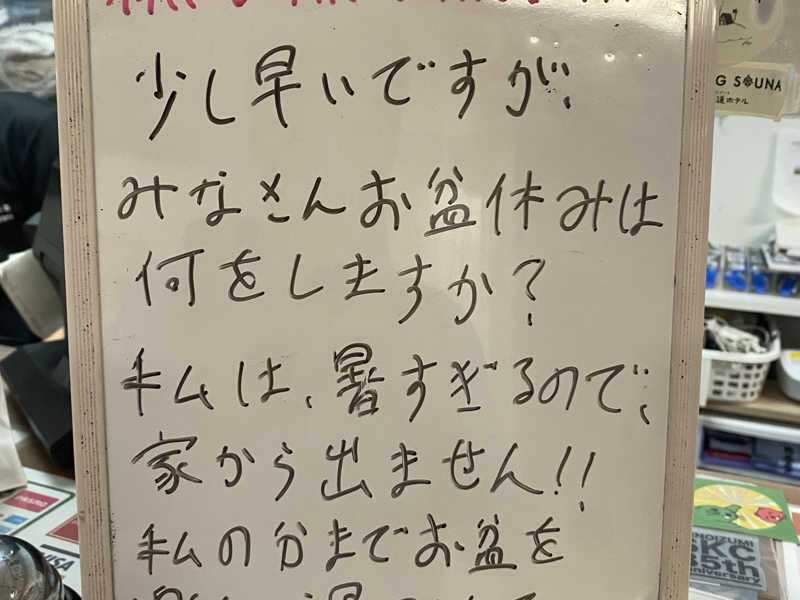 少し早いですが、
みなさんお盆休みは
何をしますか?
私は、暑すぎるので、
家から出ません!!
私の分までお盆を
G SAUNA
ホテル
PASMO
NOIZUMI
KC
35th
nniversary